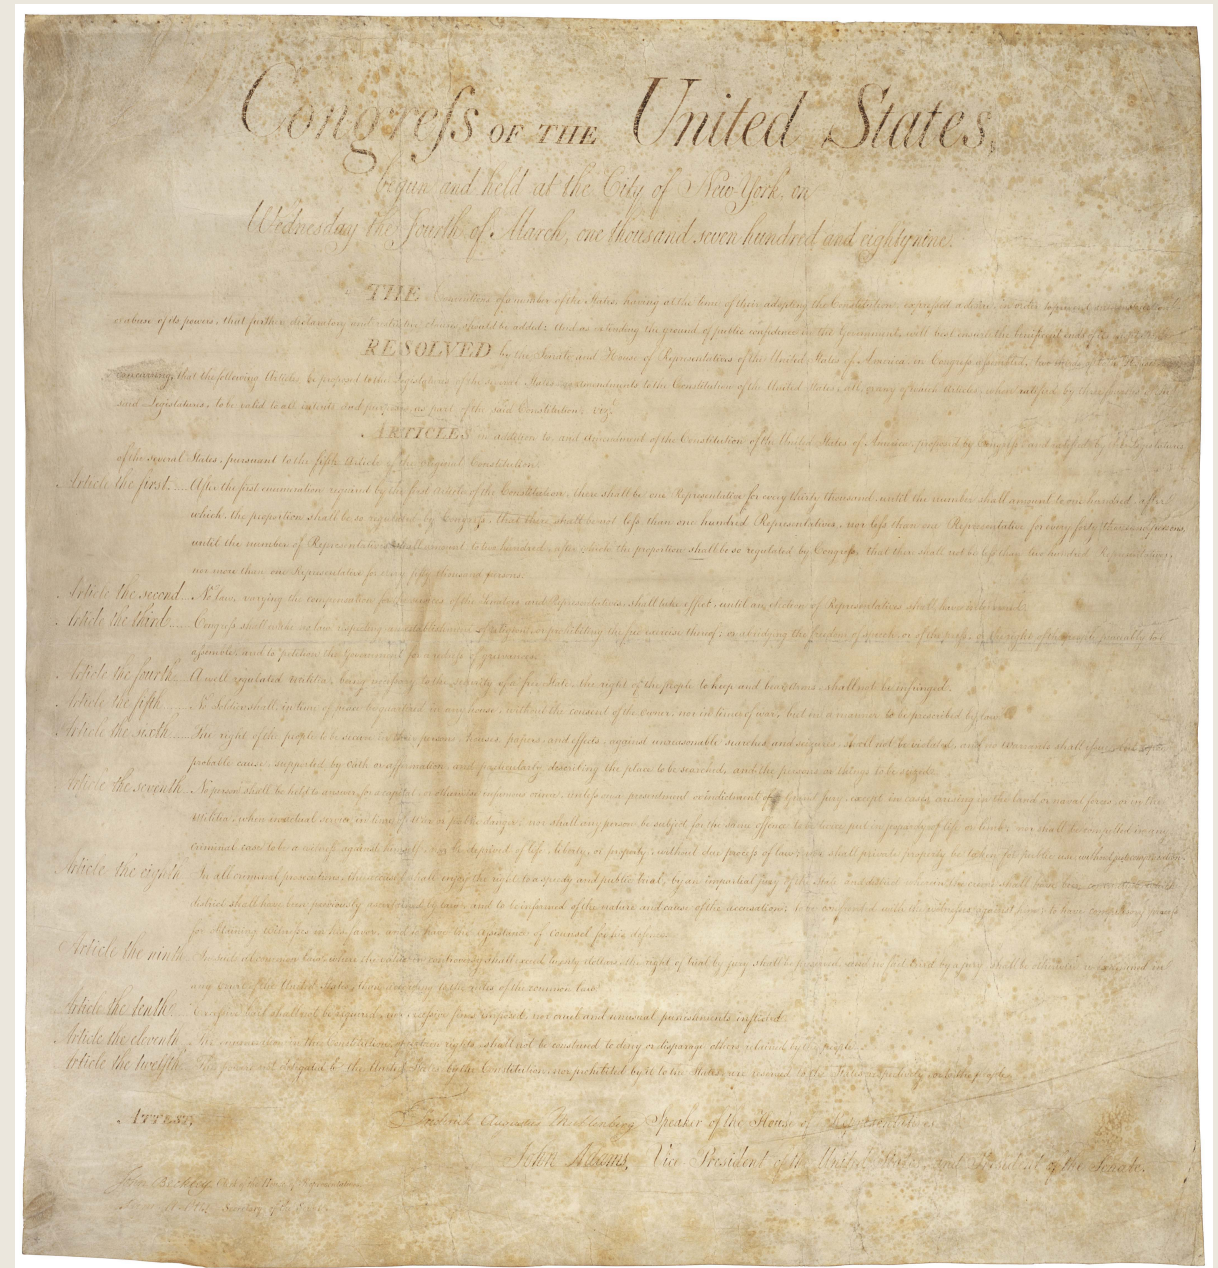 Congreſs OF THE United States,
begun and held at the City of New-York, on
Wednesday the fourth of March, one thousand seven hundred and eighty nine.
THE Conventions of a number of the States, having at the time of their adopting the Constitution, expreſsed a desire, in order to prevent
or abuse of its powers, that further declaratory and restrictive clauses should be added: And as extending the ground of public confidence in the Government, will best ensure the beneficent ends of its
RESOLVED by the Senate and House of Representatives of the United States of America, in Congreſs aſsembled, two thirds of both Houses
concurring, that the following Articles be proposed to the Legislatures of the several States, as amendments to the Constitution of the United States, all, or any of which Articles, when ratified by three fourths of the
said Legislatures, to be valid to all intents and purposes, as part of the said Constitution; vizt.
ARTICLES in addition to, and amendment of the Constitution of the United States of America, proposed by Congreſs, and ratified by the Legislatures
of the several States, pursuant to the fifth Article of the original Constitution.
Article the first... After the first enumeration required by the first Article of the Constitution, there shall be one Representative for every thirty thousand, until the number shall amount to one hundred, after
which, the proportion shall be so regulated by Congreſs, that there shall be not leſs than one hundred Representatives, nor leſs than one Representative for every forty thousand persons,
until the number of Representatives shall amount to two hundred, after which the proportion shall be so regulated by Congreſs, that there shall not be leſs than two hundred Representatives,
nor more than one Representative for every fifty thousand persons.
Article the second... No law, varying the compensation for the services of the Senators and Representatives, shall take effect, until an election of Representatives shall have intervened.
Article the third... Congreſs shall make no law respecting an establishment of religion, or prohibiting the free exercise thereof; or abridging the freedom of speech, or of the preſs; or the right of the people peaceably to
aſsemble, and to petition the Government for a redreſs of grievances.
Article the fourth... A well regulated Militia, being neceſsary to the security of a free State, the right of the people to keep and bear Arms, shall not be infringed.
Article the fifth... No Soldier shall, in time of peace be quartered in any house, without the consent of the owner, nor in time of war, but in a manner to be prescribed by law.
Article the sixth... The right of the people to be secure in their persons, houses, papers, and effects, against unreasonable searches and seizures, shall not be violated, and no Warrants shall iſsue, but upon
probable cause, supported by Oath or affirmation, and particularly describing the place to be searched, and the persons or things to be seized.
Article the seventh... No person shall be held to answer for a capital, or otherwise infamous crime, unleſs on a presentment or indictment of a Grand Jury, except in cases arising in the land or naval forces, or in the
Militia, when in actual service in time of War or public danger; nor shall any person be subject for the same offence to be twice put in jeopardy of life or limb; nor shall be compelled in any
criminal case to be a witneſs against himself, nor be deprived of life, liberty, or property, without due proceſs of law; nor shall private property be taken for public use, without just compensation.
Article the eighth... In all criminal prosecutions, the accused shall enjoy the right to a speedy and public trial, by an impartial jury of the State and district wherein the crime shall have been committed, which
district shall have been previously ascertained by law, and to be informed of the nature and cause of the accusation; to be confronted with the witneſses against him; to have compulsory proceſs
for obtaining Witneſses in his favor, and to have the aſsistance of counsel for his defence.
Article the ninth... In suits at common law, where the value in controversy shall exceed twenty dollars, the right of trial by jury shall be preserved, and no fact tried by a jury, shall be otherwise re-examined in
any Court of the United States, than according to the rules of the common law.
Article the tenth... Exceſsive bail shall not be required, nor exceſsive fines imposed, nor cruel and unusual punishments inflicted.
Article the eleventh... The enumeration in the Constitution, of certain rights, shall not be construed to deny or disparage others retained by the people.
Article the twelfth... The powers not delegated to the United States by the Constitution, nor prohibited by it to the States, are reserved to the States respectively, or to the people.
ATTEST,
Frederick Augustus Muhlenberg Speaker of the House of Representatives.
John Adams, Vice President of the United States, and President of the Senate.
John Beckley, Clerk of the House of Representatives.
Secretary of the Senate.